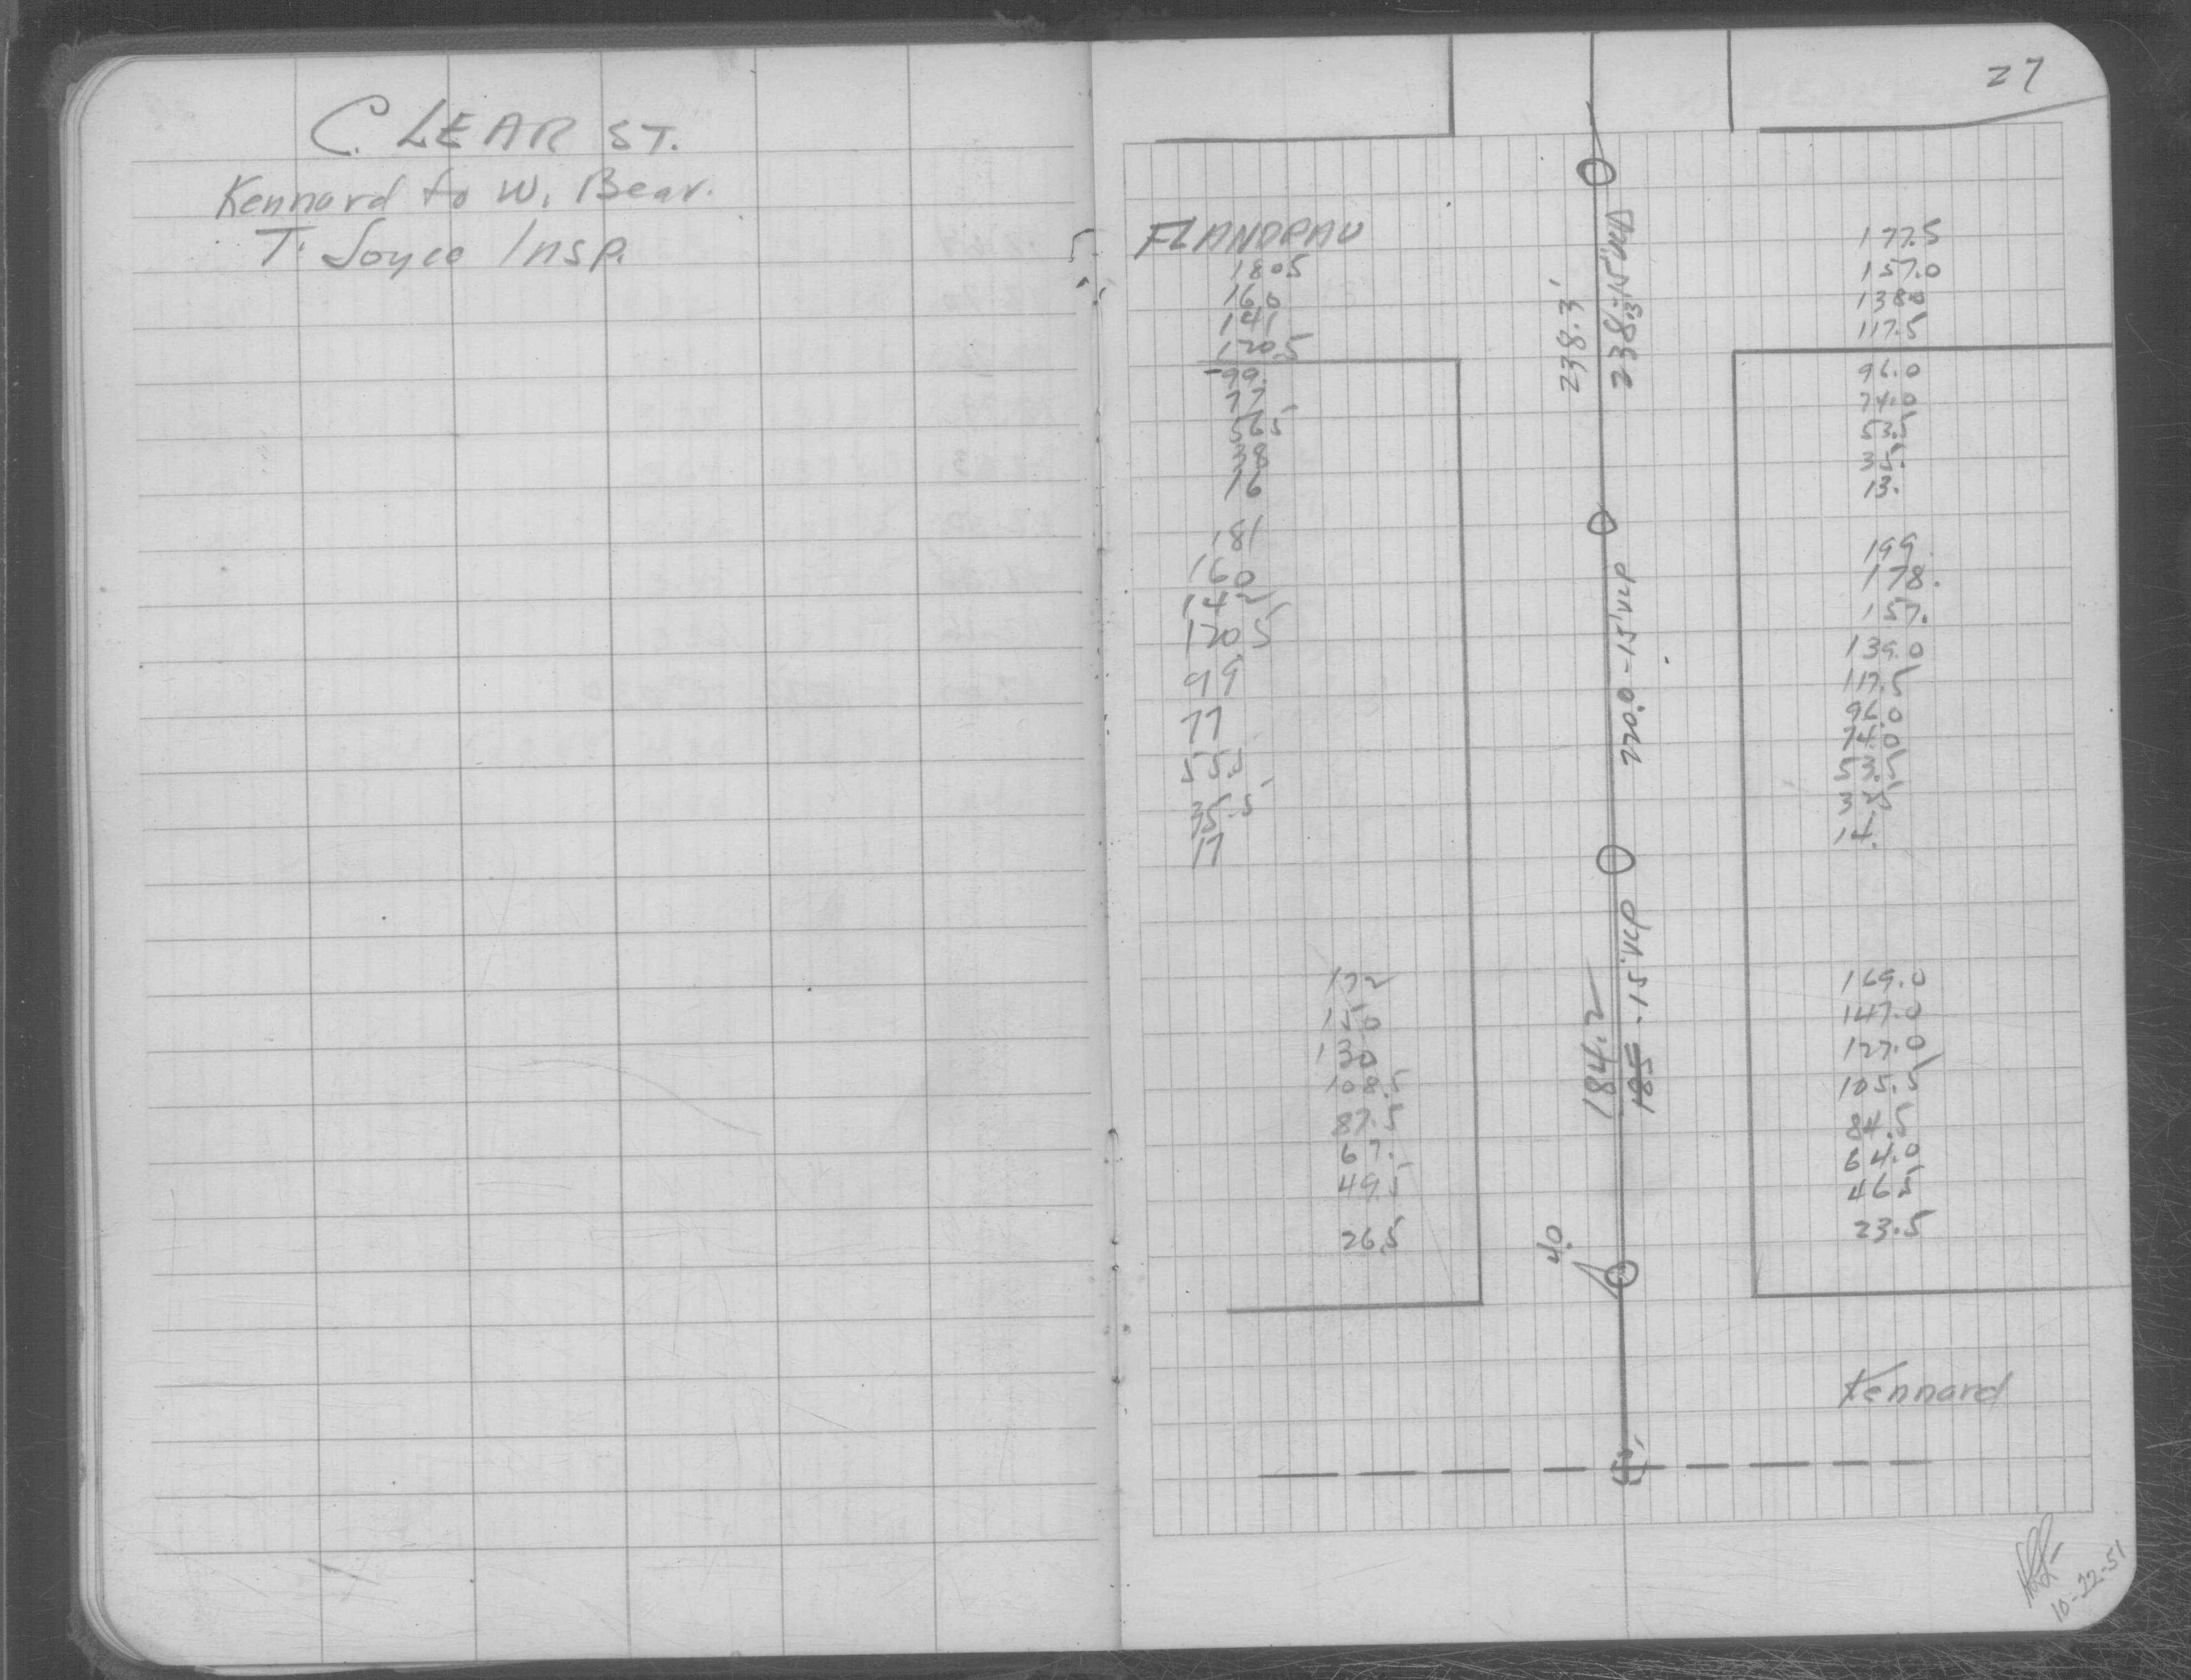 C. LEAR ST.
Kennard to W. Bear.
T. Joyce Insp.
27
FLANDRAU
180.5
160
141
120.5
99.
77
56.5
38
16
181
160
142
120.5
99
77
55.5
35.5
17
172
150
130
108.5
87.5
67.
49.5
26.5
238.3'
238.3-15"VCP
220.0-15"VCP
184.2
185-15"VCP
4.0
177.5
157.0
138.0
117.5
96.0
74.0
53.5
35.
13.
199
178.
157.
139.0
117.5
96.0
74.0
53.5
14.
169.0
147.0
127.0
105.5
84.5
64.0
46.5
23.5
Kennard
10-22-51